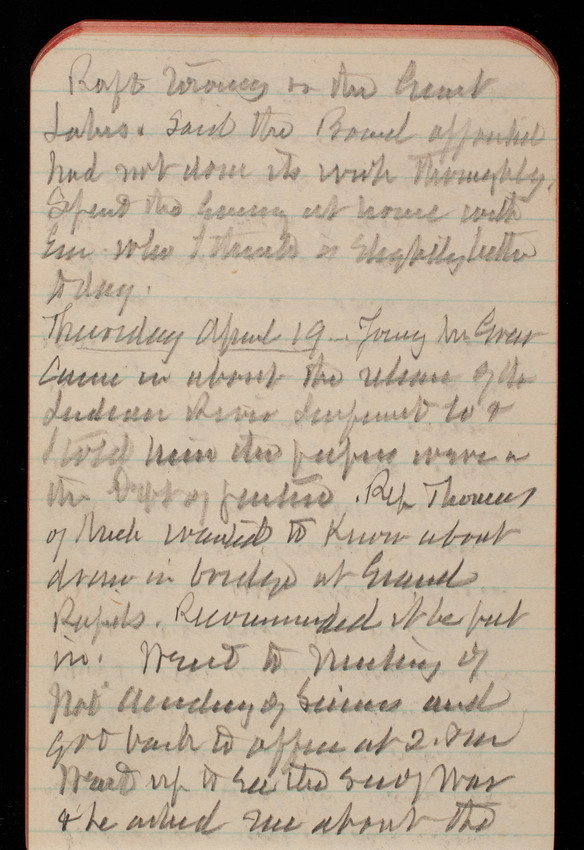 Raft towing on the Great
Lakes. Said the Board appointed
had not done its work thoroughly.
Spend the evening at home with
Em who I think is slightly better
today.
Thursday April 19. Young McGrew
came in about the release of the
Indian River
I told him the papers were in
the Dept of Justice. Rep Thomas
of Mich wanted to know about
draw in bridge at Grand
Rapids. Recommended it be put
in. Went to meeting of
Nat Academy of Sciences and
got back to office at 2.
Went up to see the Secy War
& he asked me about the